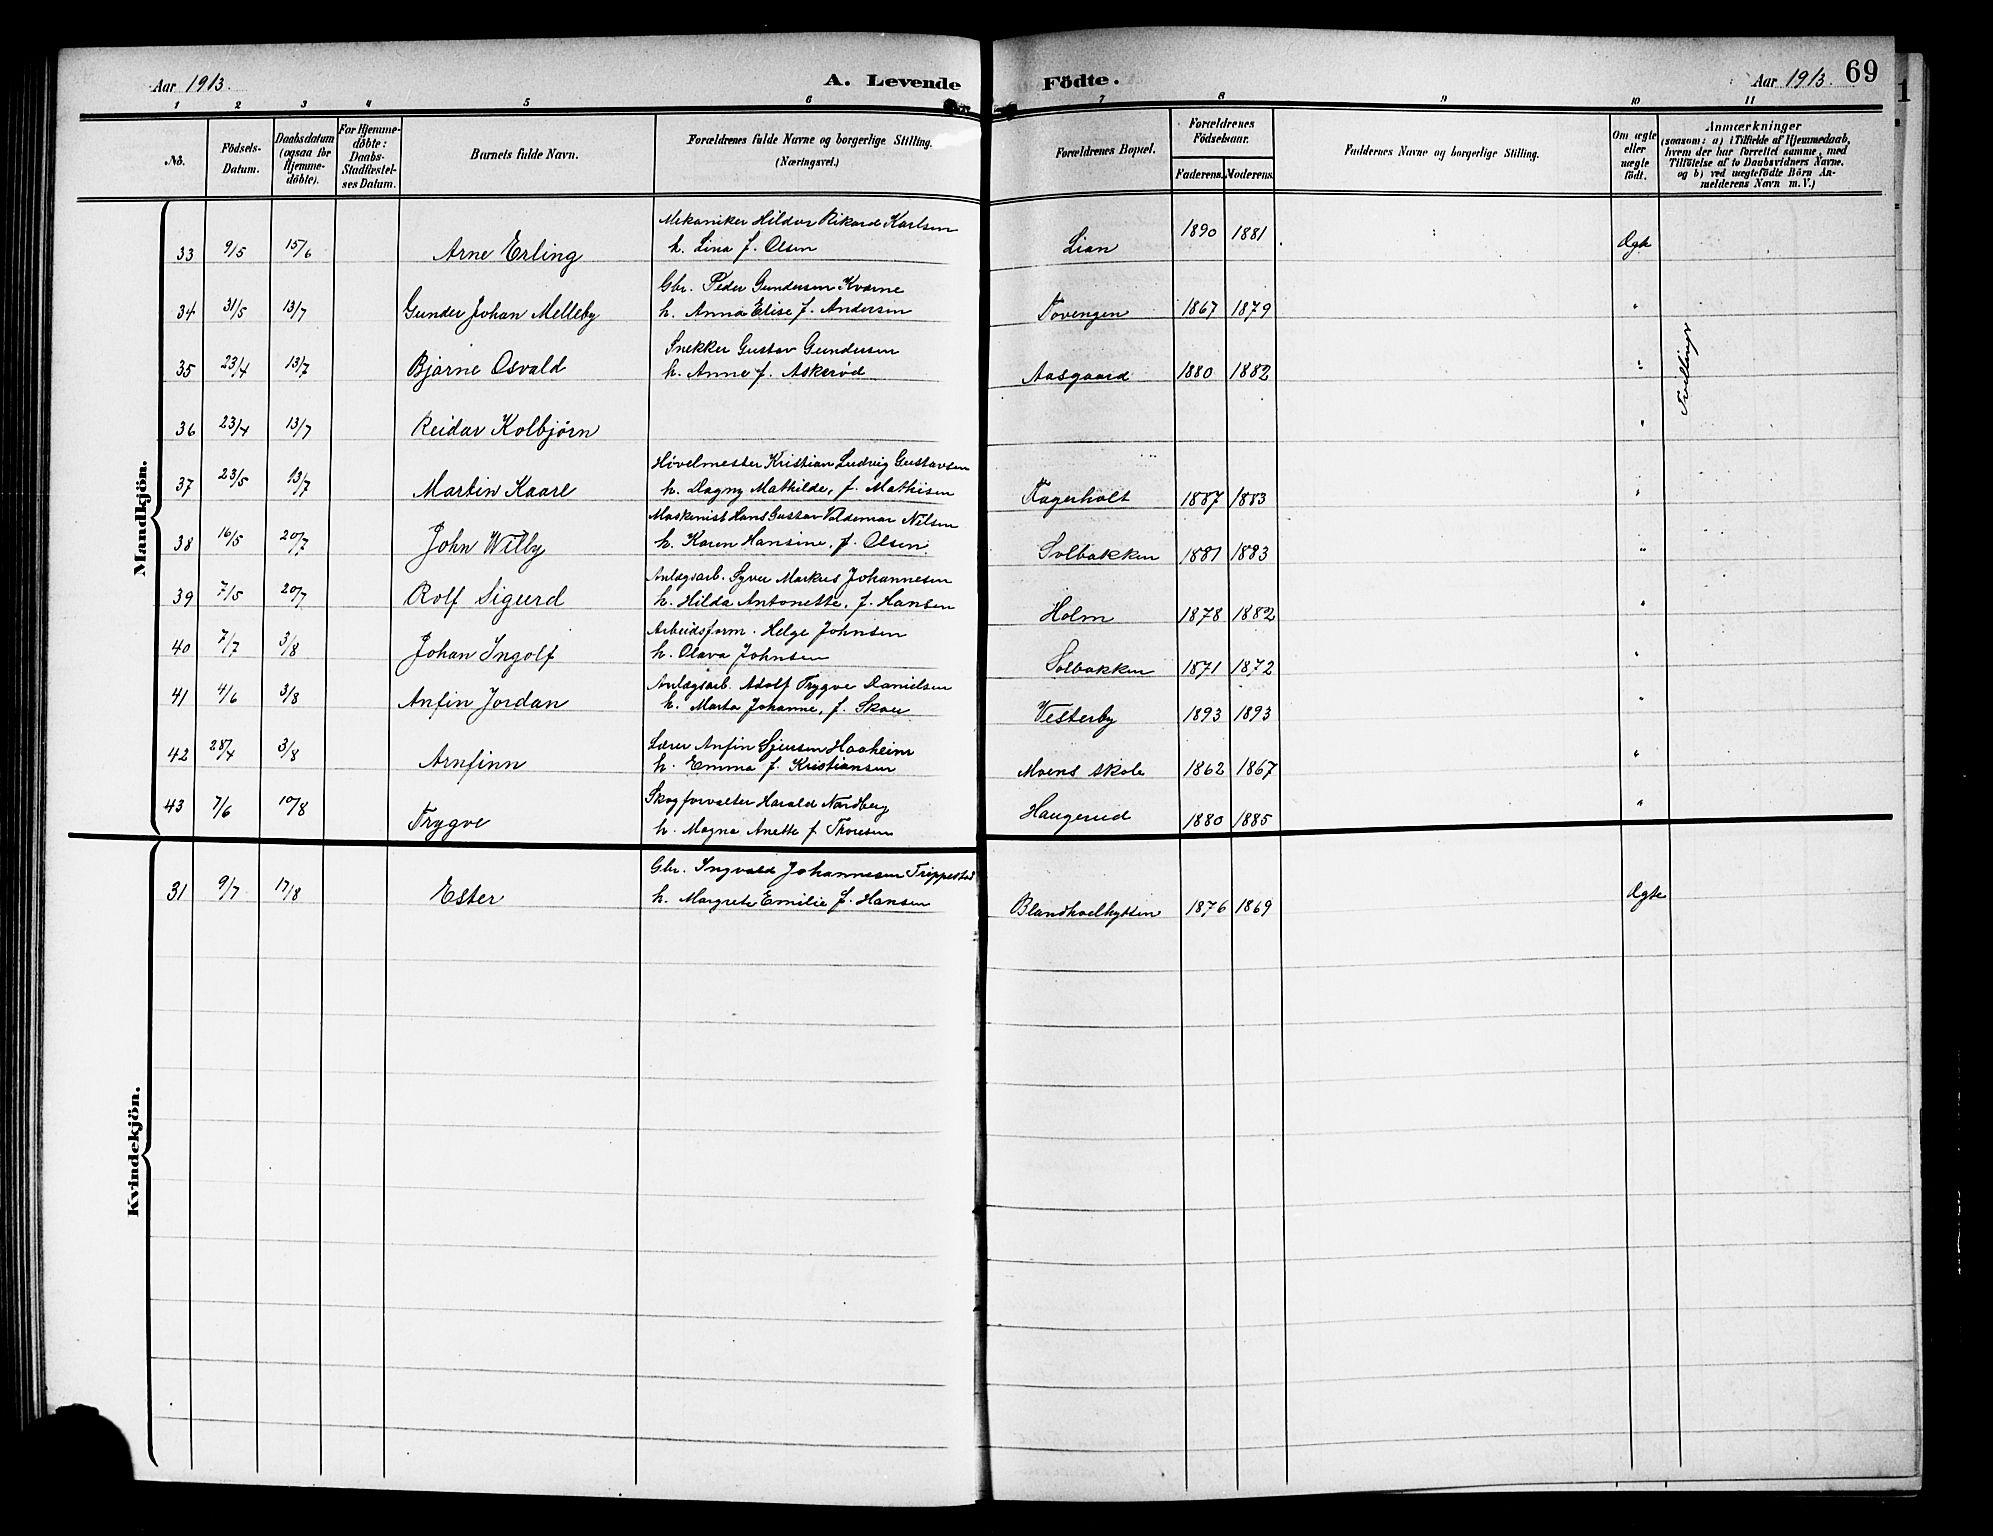 Aar 1913.
A. Levende
Födte.
Aar 1913.
69
1 2 3 4 5 6 7 8 9 10 11
No.
Födsels-
Datum.
Daabsdatum
(ogsaa for
Hjemme-
döbte).
For Hjemme-
döbte:
Daabs-
Stadfæstel-
ses Datum.
Barnets fulde Navn.
Forældrenes fulde Navne og borgerlige Stilling.
(Næringsvei.)
Forældrenes Bopæl.
Forældrenes
Födselsaar.
Faderens. Moderens.
Faddernes Navne og borgerlige Stilling.
Om ægte
eller
uægte
födt.
Anmærkninger
(saasom: a) i Tilfælde af Hjemmedaab,
hvem der har forrettet samme, med
Tilföielse af to Daabsvidners Navne,
og b) ved uægtefödte Börn An-
melderens Navn m. V.)
Mandkjön.
Mekaniker Hildor Rikard Karlsen
33 9/5 15/6 Arne Erling h. Lina f. Olsen Lian 1890 1881 Ægte
Gbr. Peder Gundersen Kværne
34 31/5 13/7 Gunder Johan Melleby h. Anna Elise f. Andersen Tovengen 1867 1879 "
Snekker Gustav Gundersen
35 23/4 13/7 Bjarne Osvald h. Anne f. Askerød Aasgaard 1880 1882 "
Tvillinger
36 23/4 13/7 Reidar Kolbjørn "
Høvelmester Kristian Ludvig Gustavsen
37 23/5 13/7 Martin Kaare h. Dagny Mathilde, f. Mathisen Fagerholt 1887 1883 "
Maskinist Hans Gustav Valdemar Nilsen
38 16/5 20/7 John Wilby h. Karen Hansine, f. Olsen. Solbakken 1881 1883 "
Anlægsarb. Syver Markus Johannesen
39 7/5 20/7 Rolf Sigurd h. Hilda Antonette, f. Hansen Holm 1878 1882 "
Arbeidsform. Helge Johnsen
40 7/7 3/8 Johan Ingolf h. Olava Johnsen Solbakken 1871 1872 "
Anlægsarb. Adolf Trygve Danielsen
41 4/6 3/8 Anfin Jordan h. Marta Johanne, f. Skou Vesterby 1893 1893 "
Lærer Anfin Haaheim
42 28/4 3/8 Arnfinn h. Emma f. Kristiansen Moens skole 1862 1867 "
Skogforvalter Harald Nordberg
43 7/6 10/8 Trygve h. Magna Anette f. Thoresen Haugerud 1880 1885 "
Kvindekjön.
Gbr. Ingvald Johannesen Trippestad
31 9/7 17/8 Ester h. Margrete Emilie f. Hansen 1876 1869 Ægte